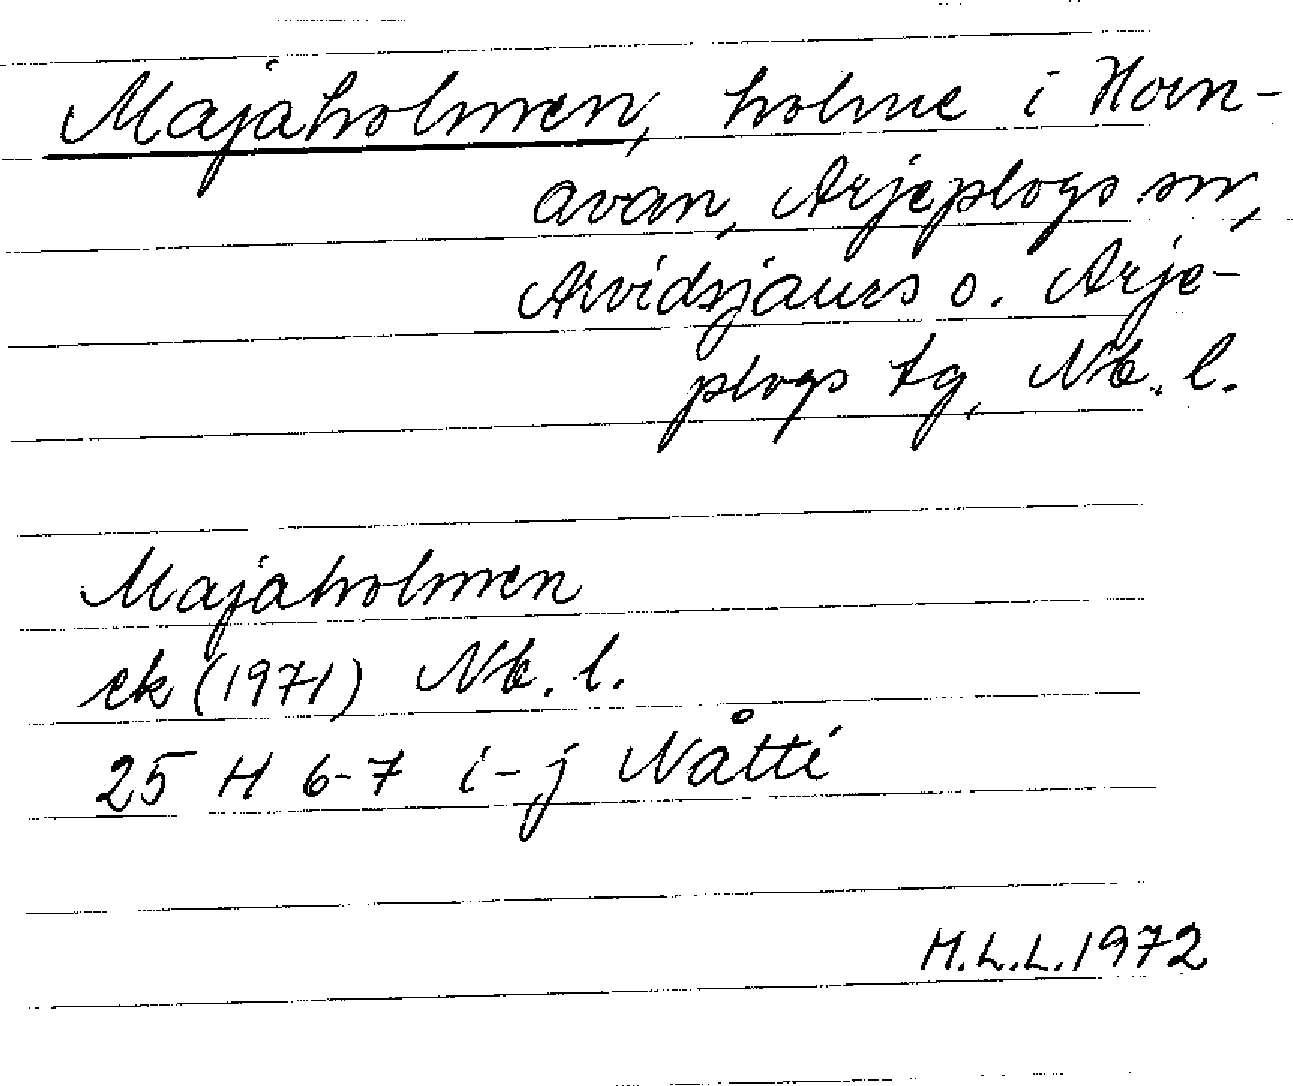 Majaholmen, holme i Horn-
avan, Arjeplogs sn,
Arvidsjaurs o. Arje-
plogs tg, Nb. l.
Majaholmen
ek (1971) Nb. l.
25 H 6-7 i-j Nåtti
M.L.L. 1972